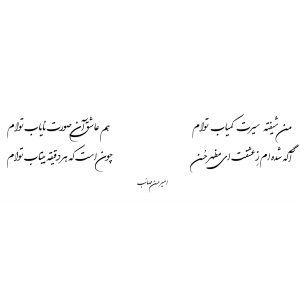 من شیفته سیرت کمیاب توام
هم عاشق آن صورت نایاب توام
آگه شده ام ز عشقت ای مظهر حُسن
چون است که هر دقیقه بیتاب توام
امیرحسن صائب